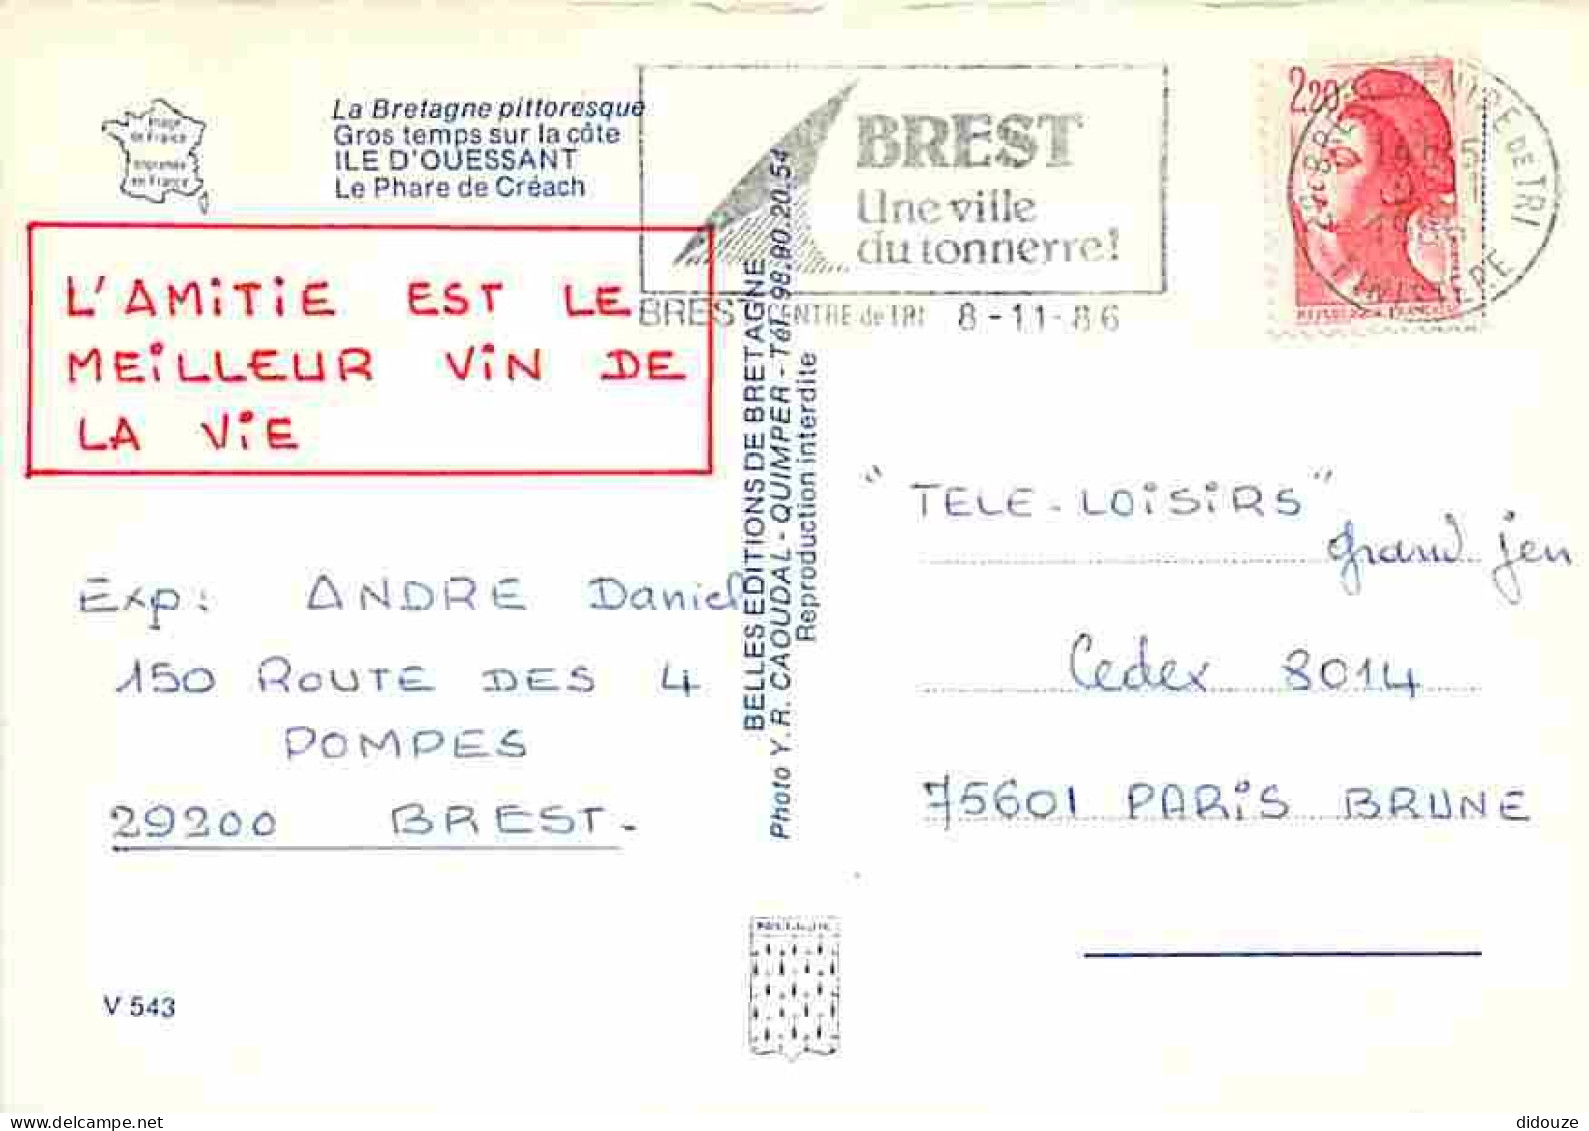 Image
de France
Imprimée
en France
La Bretagne pittoresque
Gros temps sur la côte
ILE D'OUESSANT
Le Phare de Créach
BREST
Une ville
du tonnerre!
BREST CENTRE de TRI 8-11-86
2,20
L'AMITIE EST LE
MEILLEUR VIN DE
LA VIE
Exp: ANDRE Daniel
150 ROUTE DES 4
POMPES
29200 BREST-
BELLES EDITIONS DE BRETAGNE
Photo Y.R. CAOUDAL - QUIMPER - Tél. 98.90.20.54
Reproduction interdite
"TELE-LOISIRS"
grand jeu
Cedex 8014
75601 PARIS BRUNE
V 543
didouze